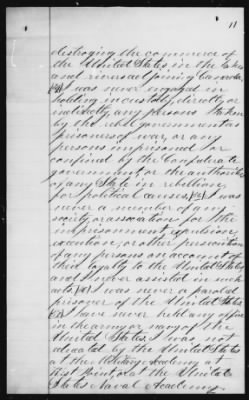 11
destroying the commerce of
the United States in the Lakes
and rivers adjoining Canada.
I was never engaged in
holding in custody, directly or
indirectly, any persons taken
by the rebel government as
prisoners of war, or any
persons imprisoned or
confined by the Confederate
government or the authorities
of any State in rebellion
for political causes. I was
never a member of any
society or association for the
imprisonment, expulsion,
execution, or other persecution
of any persons on account of
their loyalty to the United States
and never assisted in such
acts. I was never a paroled
prisoner of the United States
I have never held any office
in the army or navy of the
United States I was not
educated by the United States
at the Military Academy at
West Point or at the United
States Naval Academy